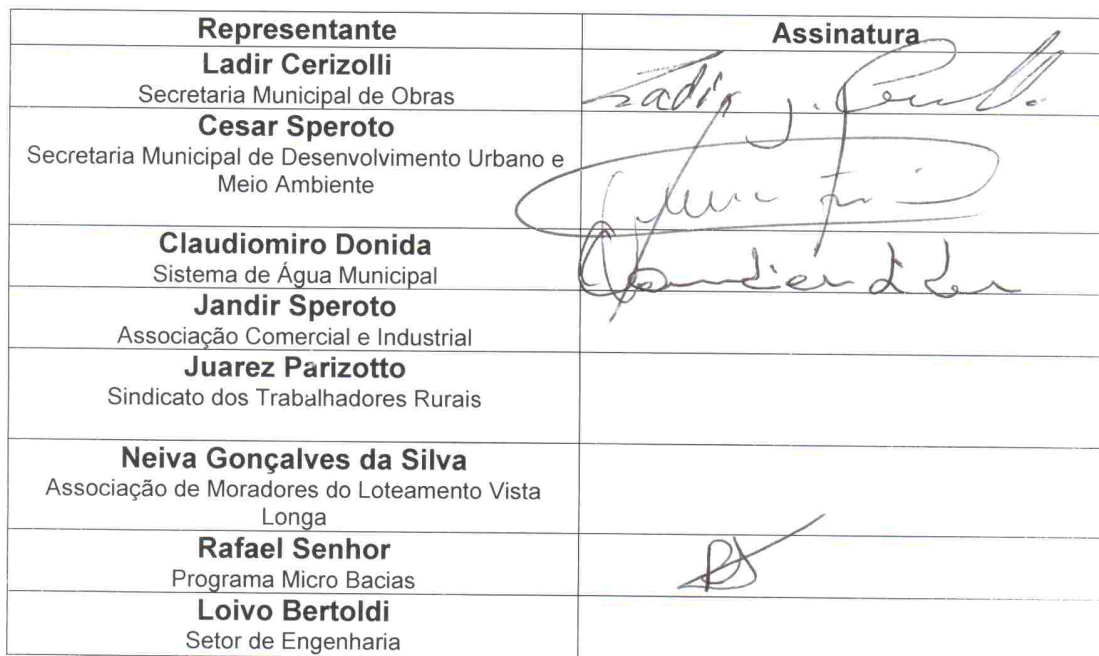 Representante Assinatura
Ladir Cerizolli
Secretaria Municipal de Obras
Ladir J.
Cesar Speroto
Secretaria Municipal de Desenvolvimento Urbano e
Meio Ambiente
Claudiomiro Donida
Sistema de Água Municipal
Jandir Speroto
Associação Comercial e Industrial
Juarez Parizotto
Sindicato dos Trabalhadores Rurais
Neiva Gonçalves da Silva
Associação de Moradores do Loteamento Vista
Longa
Rafael Senhor
Programa Micro Bacias
Loivo Bertoldi
Setor de Engenharia